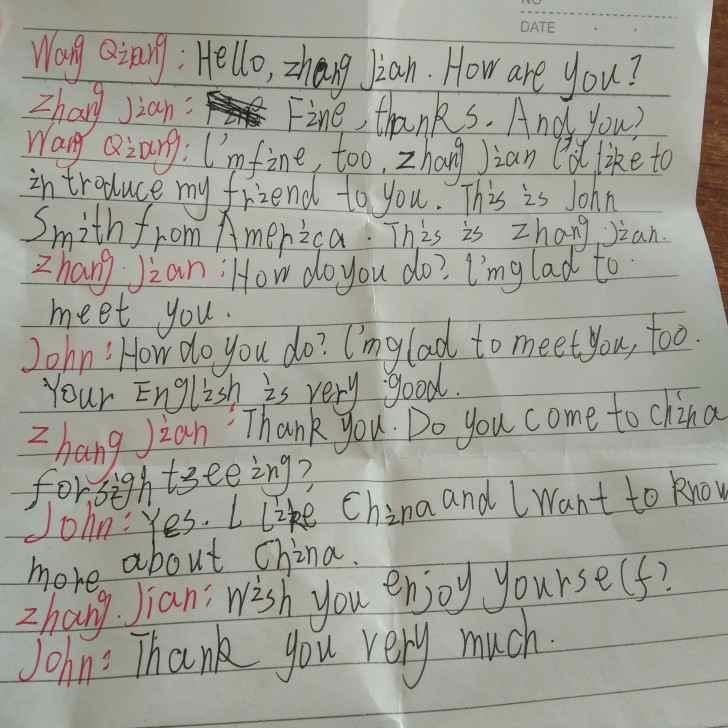 NO
DATE
Wang Qiang: Hello, zhang Jian. How are you?
Zhang Jian: Fine, thanks. And you?
Wang Qiang: I'm fine, too, zhang Jian I'd like to
introduce my friend to you. This is John
Smith from America. This is zhang Jian.
Zhang Jian: How do you do? I'm glad to
meet you.
John: How do you do? I'm glad to meet you, too.
Your English is very good.
Zhang Jian: Thank you. Do you come to china
for sightseeing?
John: Yes. I like China and I want to know
more about China.
Zhang. Jian: Wish you enjoy yourself?
John: Thank you very much.